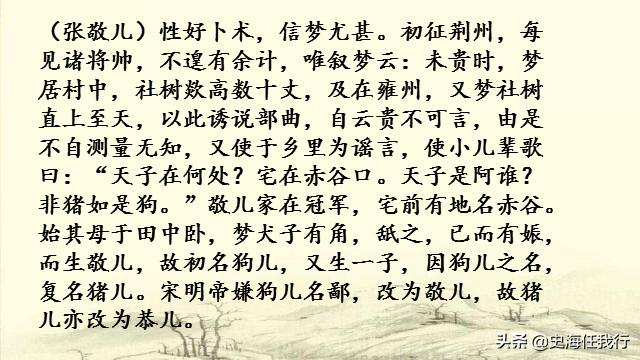 （张敬儿）性好卜术，信梦尤甚。初征荆州，每
见诸将帅，不遑有余计，唯叙梦云：未贵时，梦
居村中，社树欻高数十丈，及在雍州，又梦社树
直上至天，以此诱说部曲，自云贵不可言，由是
不自测量无知，又使于乡里为谣言，使小儿辈歌
曰：“天子在何处？宅在赤谷口。天子是阿谁？
非猪如是狗。”敬儿家在冠军，宅前有地名赤谷。
始其母于田中卧，梦犬子有角，舐之，已而有娠，
而生敬儿，故初名狗儿，又生一子，因狗儿之名，
复名猪儿。宋明帝嫌狗儿名鄙，改为敬儿，故猪
儿亦改为恭儿。
头条 @史海任我行